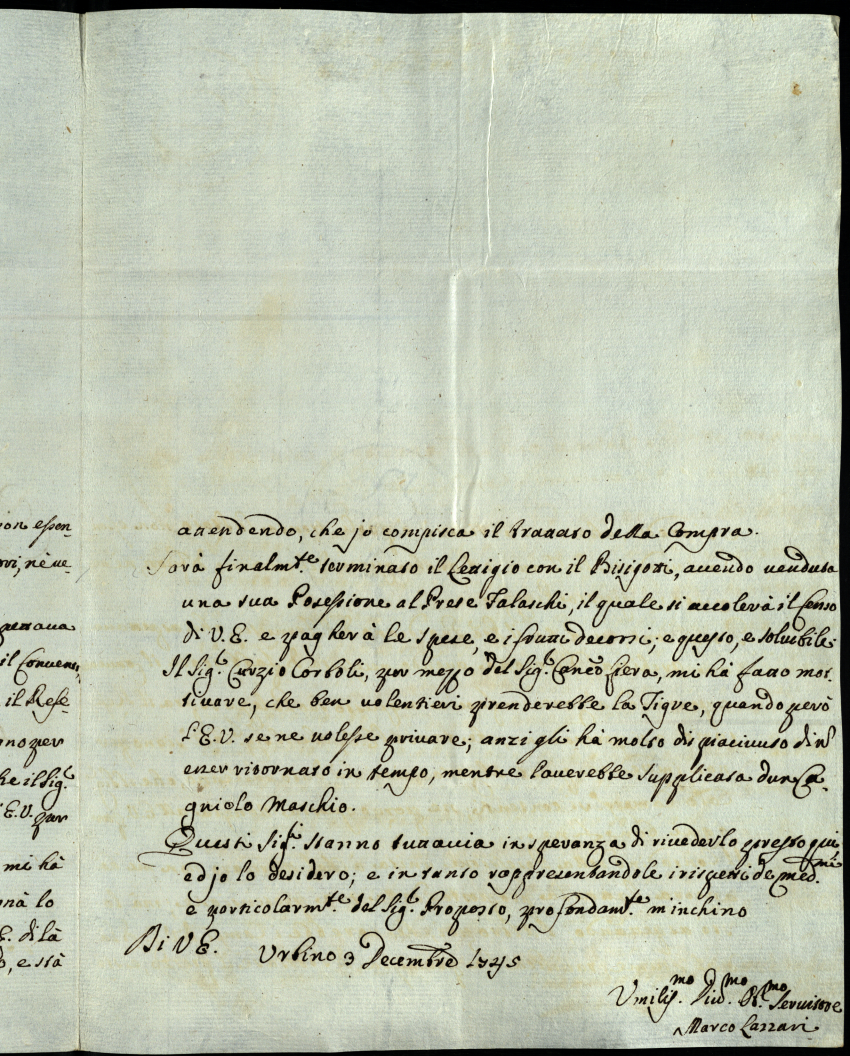 ion essen-
ovi, nè ve-
il Convens.
il Rese-
ano per
he il Sig.e
E.V. per
mi hà
nà lo
E. di là
o, e stà
attendendo, che jo compisca il trattato della Compra.
Sarà finalm.te terminato il Letigio con il Bisigotti, avendo venduta
una sua Posessione al Prete Falaschi, il quale si accolerà il Censo
di V.E. e pagherà le spese, e i frutti decorsi; e questo, e solubile.
Il Sig.e Curzio Corboli, per mezzo del Sig.e Canco Fiera, mi hà fatto mot-
tivare, che ben volentieri prenderebbe la Tigre, quando però
l'E.V. se ne volesse privare; anzi gli hà molto dispiaciuto di n
esser ritornato in tempo, mentre l'averebbe supplicata d'un Ca-
gniolo Maschio.
Questi Sig.i stanno tuttavia in speranza di rivederlo presto qui
ed jo lo desidero; e in tanto rappresentandole i rispetti de med.mi
e particolarm.te del Sig.e Proposto, profondam.te m'inchino
Di V.E. Urbino 3 Decembre 1745
Umilis.mo Div.mo Ob.mo Servitore
Marco Lazzari